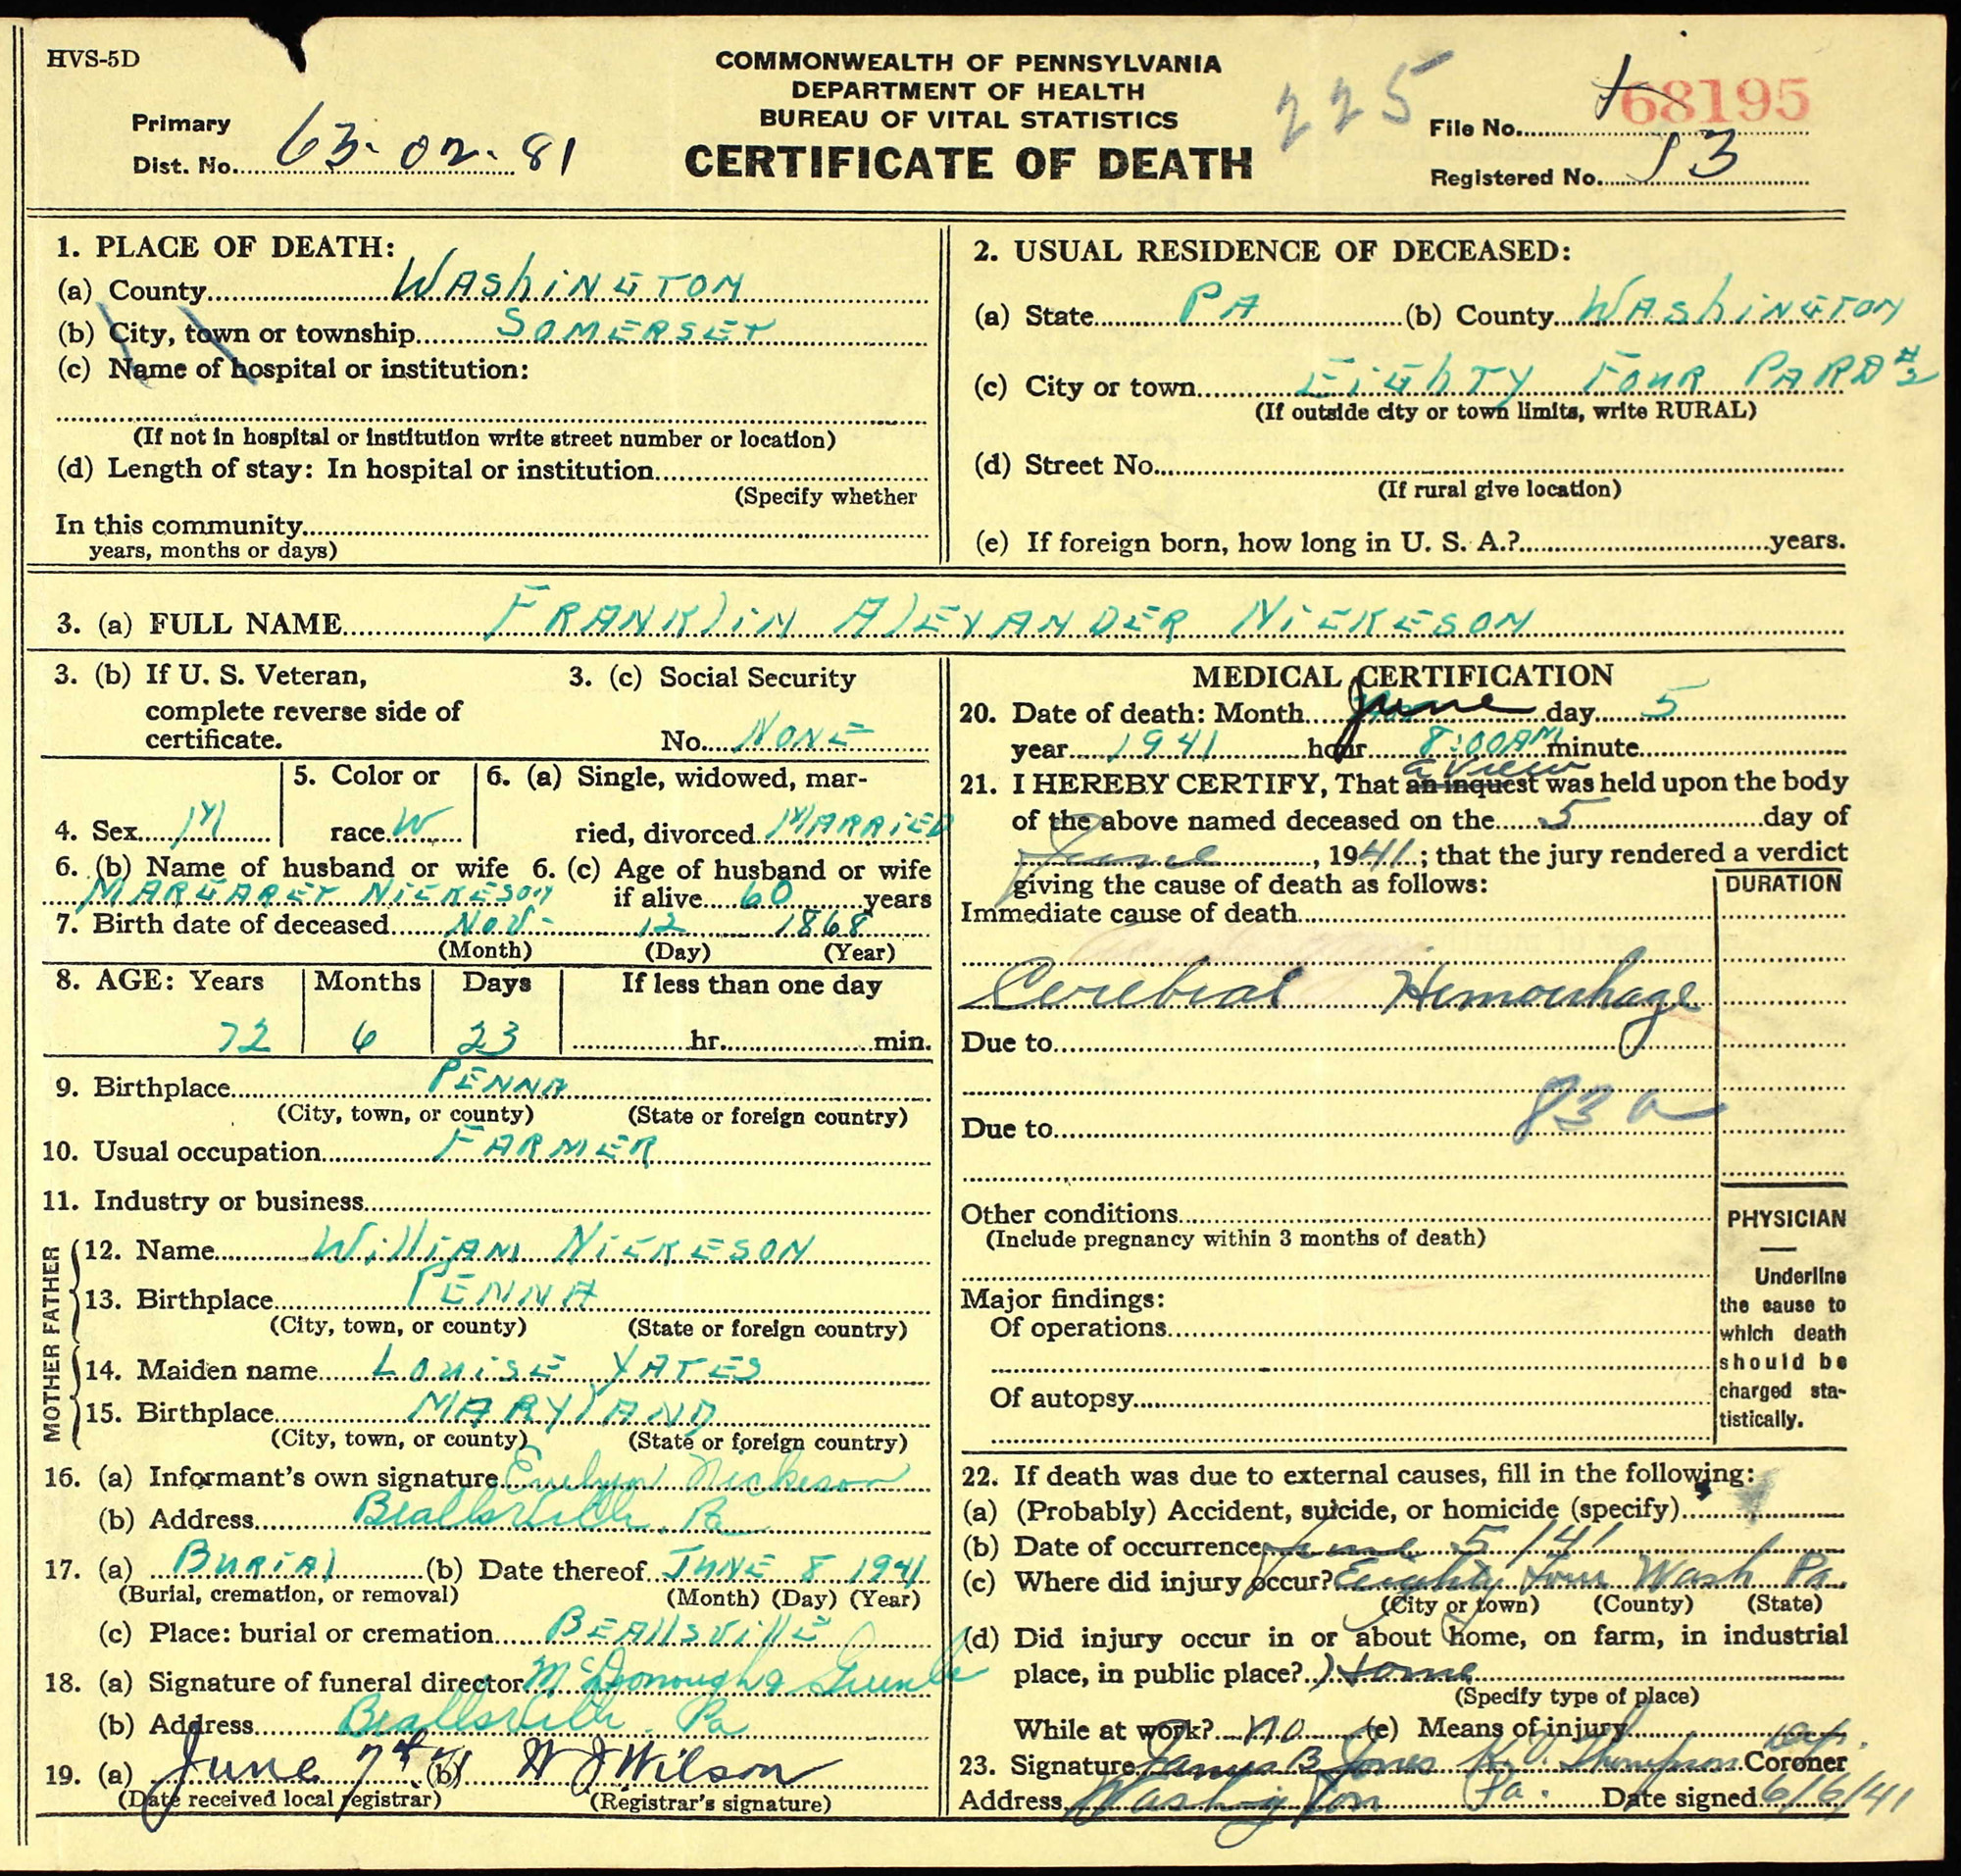 HVS-5D
COMMONWEALTH OF PENNSYLVANIA
DEPARTMENT OF HEALTH
BUREAU OF VITAL STATISTICS
CERTIFICATE OF DEATH
225
Primary
Dist. No. 63-02-81
File No. 68195
Registered No. 13
1. PLACE OF DEATH:
(a) County WAShiNGTON
(b) City, town or township SOMERSET
(c) Name of hospital or institution:
(If not in hospital or institution write street number or location)
(d) Length of stay: In hospital or institution
(Specify whether
In this community
years, months or days)
2. USUAL RESIDENCE OF DECEASED:
(a) State PA (b) County WAShiNGTON
(c) City or town EiGhTY FOuR PA RD #2
(If outside city or town limits, write RURAL)
(d) Street No.
(If rural give location)
(e) If foreign born, how long in U. S. A.? years.
3. (a) FULL NAME FRANKliN AlEXANDER NiCKESON
3. (b) If U. S. Veteran,
complete reverse side of
certificate.
3. (c) Social Security
No. NONE
4. Sex M
5. Color or
race W
6. (a) Single, widowed, mar-
ried, divorced MARRiED
6. (b) Name of husband or wife
MARGARET NiCKESON
6. (c) Age of husband or wife
if alive 60 years
7. Birth date of deceased NOV- 12 1868
(Month) (Day) (Year)
8. AGE: Years Months Days If less than one day
72 6 23 hr. min.
9. Birthplace PENNA
(City, town, or county) (State or foreign country)
10. Usual occupation FARMER
11. Industry or business
FATHER
12. Name WilliAM NiCKESON
13. Birthplace PENNA
(City, town, or county) (State or foreign country)
MOTHER
14. Maiden name LOuiSE YATES
15. Birthplace MARYlAND
(City, town, or county) (State or foreign country)
16. (a) Informant's own signature Evelyn Nickeson
(b) Address Beallsville, Pa
17. (a) BuRiAl (b) Date thereof JUNE 8 1941
(Burial, cremation, or removal) (Month) (Day) (Year)
(c) Place: burial or cremation BEAllSVillE
18. (a) Signature of funeral director McDonough &
(b) Address Beallsville, Pa
19. (a) June 7th 41 (b) W J Wilson
(Date received local registrar) (Registrar's signature)
MEDICAL CERTIFICATION
20. Date of death: Month June day 5
year 1941 hour 8:00 AM minute
21. I HEREBY CERTIFY, That an inquest a view was held upon the body
of the above named deceased on the 5 day of
June, 1941; that the jury rendered a verdict
giving the cause of death as follows:
DURATION
Immediate cause of death
Cerebral Hemorrhage
Due to
83a
Due to
Other conditions
(Include pregnancy within 3 months of death)
Major findings:
Of operations
Of autopsy
PHYSICIAN
Underline
the cause to
which death
should be
charged sta-
tistically.
22. If death was due to external causes, fill in the following:
(a) (Probably) Accident, suicide, or homicide (specify)
(b) Date of occurrence June 5/41
(c) Where did injury occur? Eighty Four Wash Pa.
(City or town) (County) (State)
(d) Did injury occur in or about home, on farm, in industrial
place, in public place? Home
(Specify type of place)
While at work? no (e) Means of injury
23. Signature James B Jones K. V. Thompson Dep. Coroner
Address Washington Pa. Date signed 6/6/41